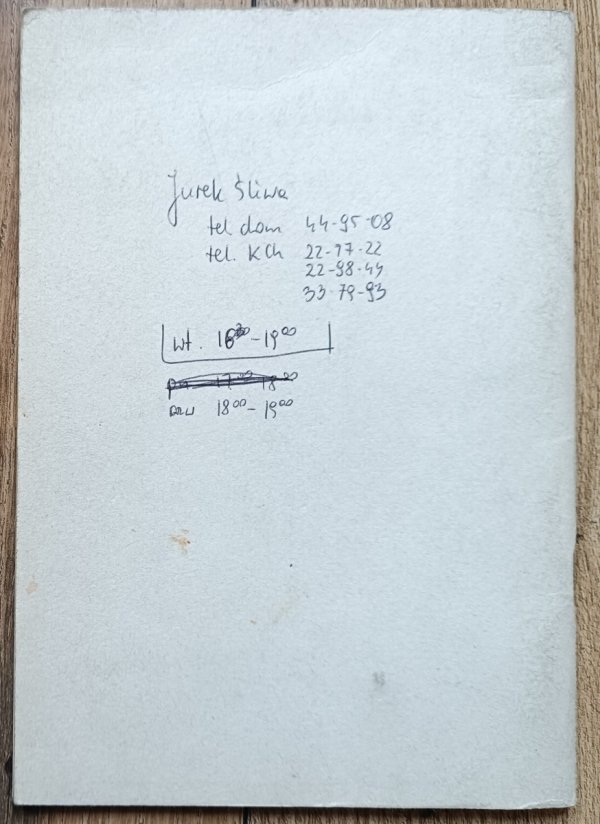 Jurek Śliwa
tel dom 44-95-08
tel. KCh 22-77-22
22-98-44
33-79-93
wt. 16³⁰-19⁰⁰
18⁰⁰-19⁰⁰